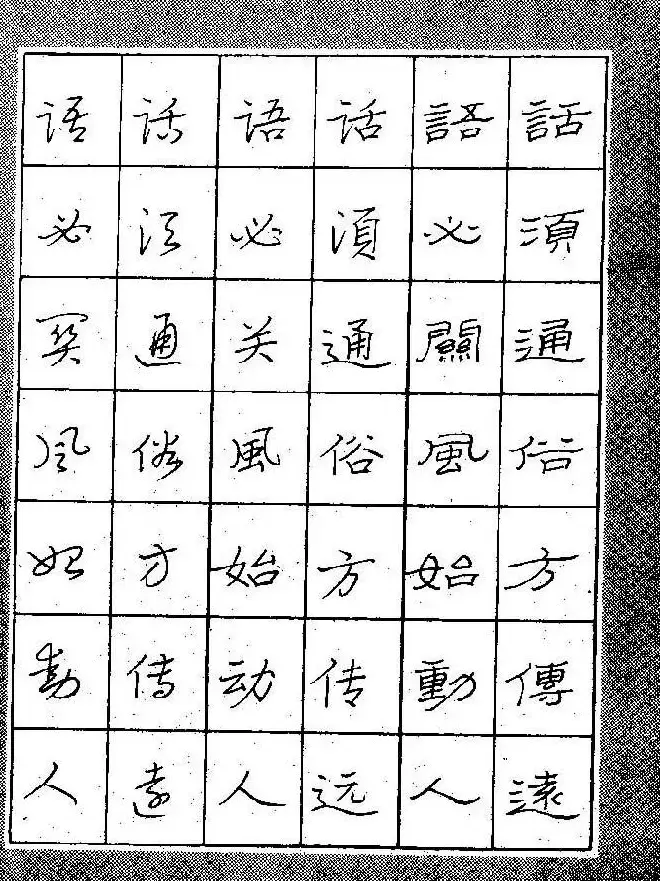 話須通俗方傳遠
語必關風始動人
话須通俗方传远
语必关風始动人
话须通俗方传遠
语必関风始動人